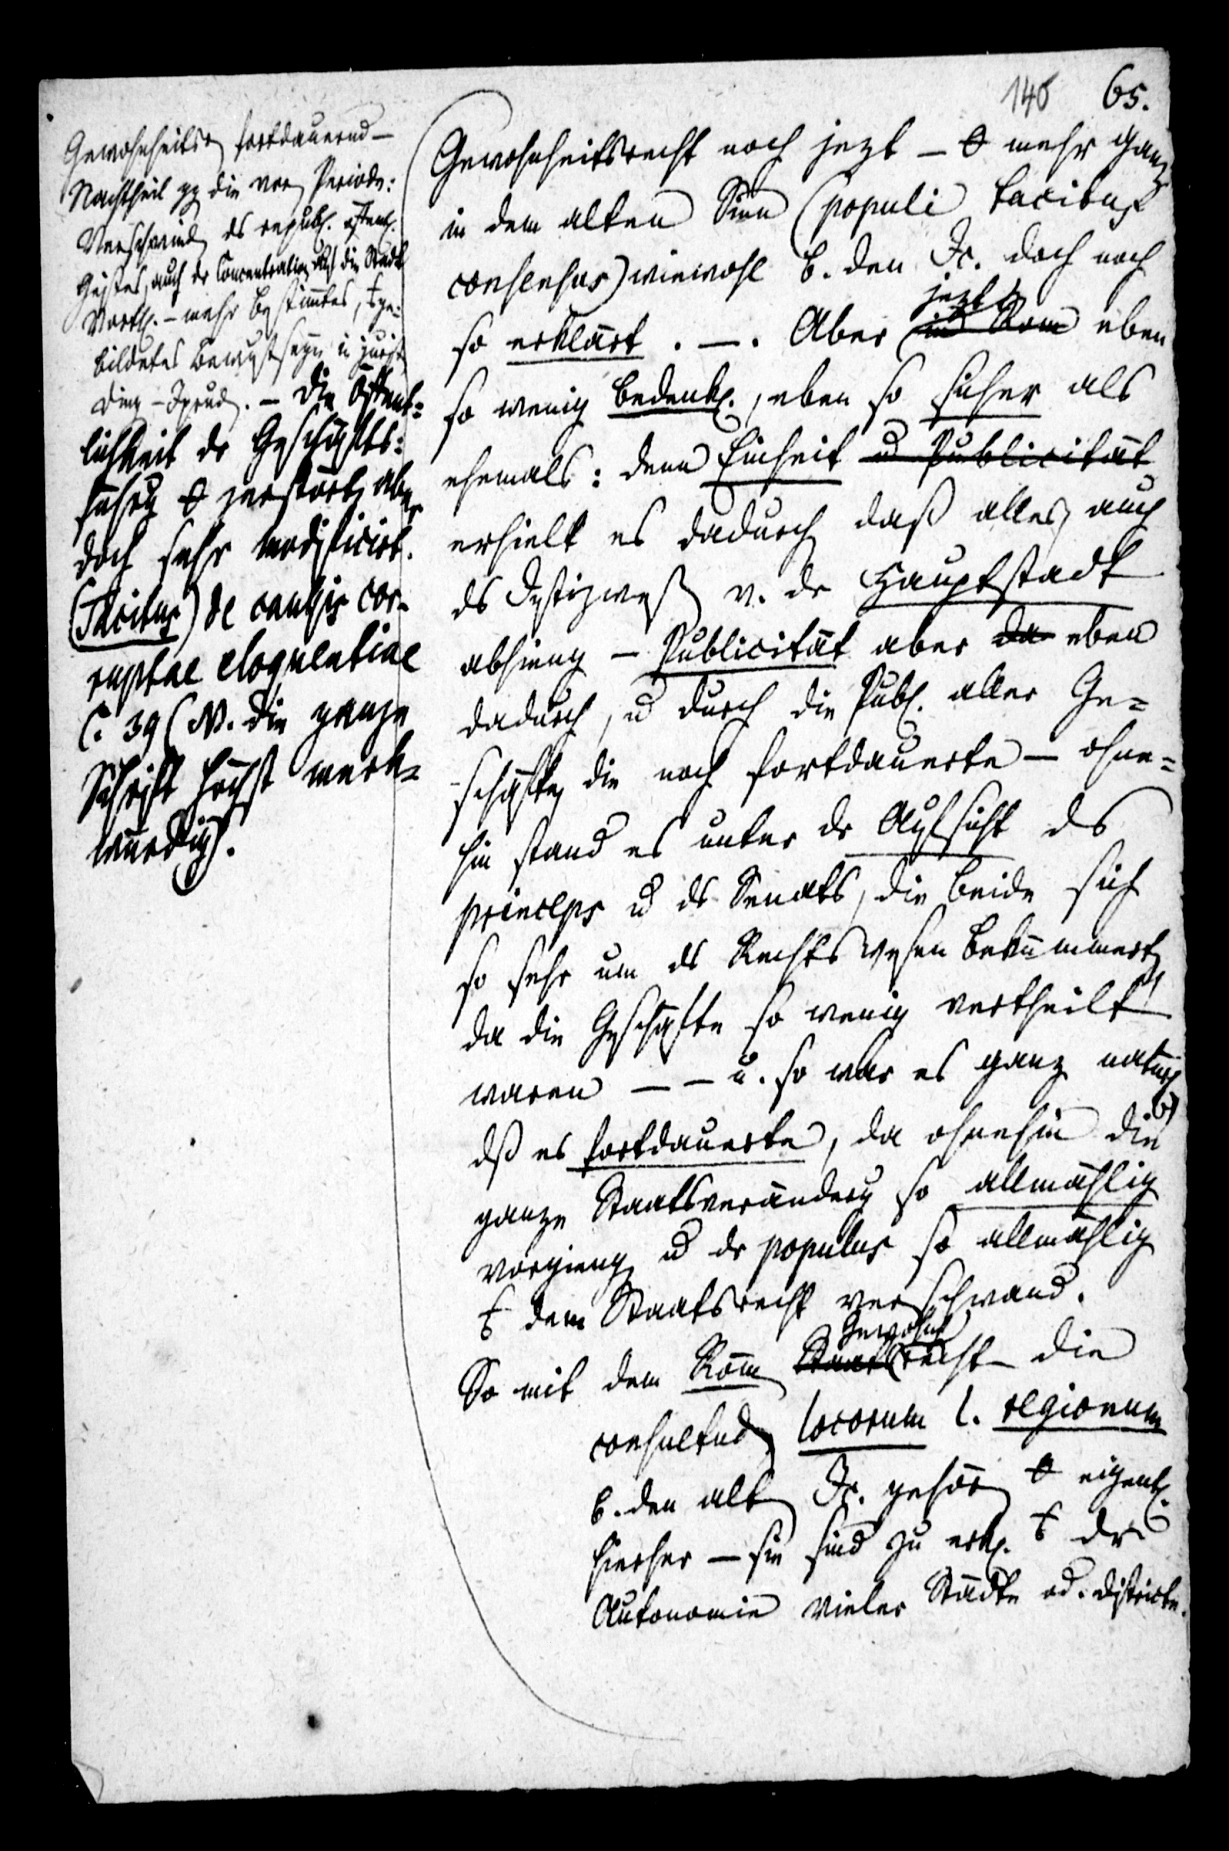 140 65.
Gewohnheitsr fortdauernd –
Nachtheil gg die vor Periode:
Verschwind ds republ. öffentl.
Geistes, auch der Concentration auf die Stadt
Vorth. – mehr bestimmtes,
bildetes Bewußtseyn in jurist
Ding – Jprud. – Die Öffent=
lichkeit dr Geschäfts=
führg zerstört, aber
doch sehr modificirt.
(Tacitus) de causis cor-
ruptae eloquentiae
C. 39 (N. die ganze
Schrift höchst merk=
würdig).
Gewohnheitsrecht noch jezt – mehr ganz
in dem alten Sinn (populi tacitus
consensus) wiewohl b. den Jc. doch noch
so erklärt . – . Aber jezt in Rom eben
so wenig bedenkl., eben so sicher als
ehemals: denn Einheit u Publicität
erhielt es dadurch daß alles, auch
ds Justizwes v. dr Hauptstadt
abhieng – Publicität aber da eben
dadurch, u durch die Publ. aller Ge=
schäfte, die noch fortdauerte – ohne=
hin stand es unter dr Aufsicht ds
princeps u ds Senats, die beide sich
so sehr um ds Rechtswesen bekümmert,
da die Geschäfte so wenig vertheilt
waren – – u. so war es ganz natürl
dß es fortdauerte, da ohnehin die
ganze Staatsveränderg so allmählig
vorgieng u dr populus so allmählig
dem Staatsrecht verschwand.
So mit dem Röm Staatsrecht Gewohnh – die
consuetud locorum l. regionum
b. den alt Jc. gehör eigentl.
hierher – sie sind zu erkl. dr
Autonomie vieler Städte od. Districte.